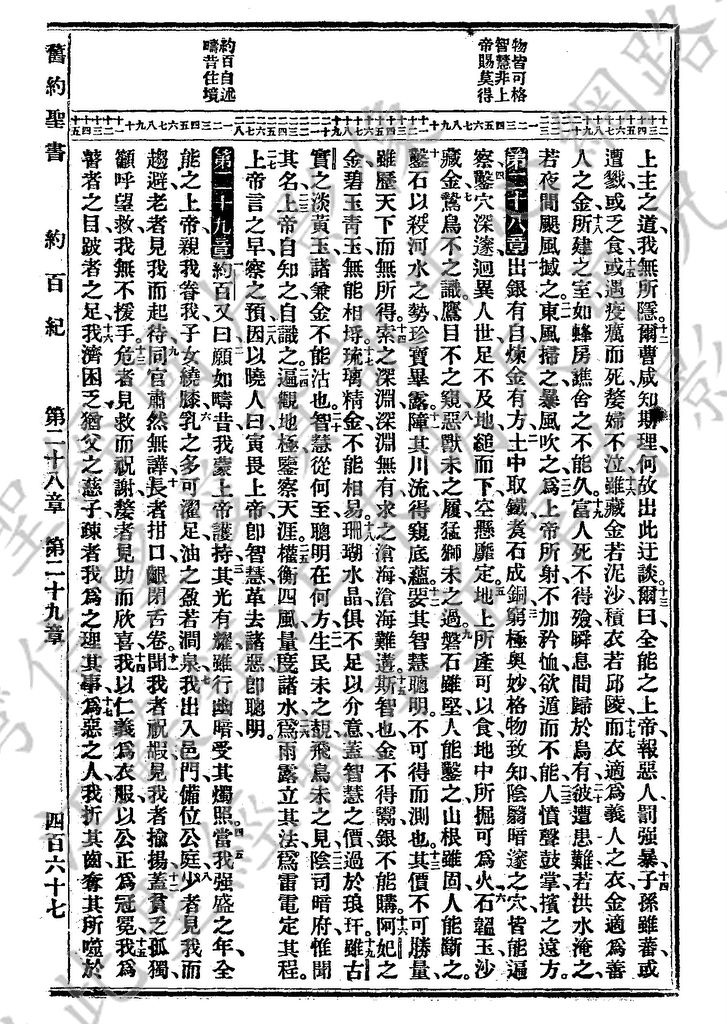 舊約聖書 約百紀 第二十八章 第二十九章 四百六十七
物皆可格
智慧非上
帝賜莫得
約百自述
疇昔佳境
上主之道我無所隱爾曹咸知斯理何故出此迂談爾曰全能之上帝報惡人罰强暴子孫雖蕃或
遭戮或乏食或遇疫癘而死嫠婦不泣雖藏金若泥沙積衣若邱陵而衣適爲義人之衣金適爲善
人之金所建之室如蜂房譙舍之不能久富人死不得殮瞬息間歸於烏有彼遭患難若洪水淹之
若夜間颶風撼之東風搢之暴風吹之爲上帝所射不加矜恤欲遁而不能人憤聲鼓掌擯之遠方
第二十八章出銀有自煉金有方土中取鐵炎石成銅窮極奥妙格物致知陰翳暗邃之穴皆能遍
察鑿穴深邃迥異人世足不及地縋而下空懸靡定地上所產可以食地中所掘可爲火石韞玉沙
藏金鷙鳥不之識鷹目不之窺惡獸未之履猛獅未之過磐石雖堅人能鑿之山根雖固人能斷之
鑿石以殺河水之勢珍寶畢露障其川流得窺底蘊要其智慧聰明不可得而測也其價不可勝量
雖歷天下而無所得索之深淵深淵無有求之滄海滄海難遘斯智也金不得鬻銀不能購阿妃之
金碧玉青玉無能相埒琉璃精金不能相易珊瑚水晶俱不足以介意蓋智慧之價過於琅玕雖古
實之淡黃玉諸兼金不能沽也智慧從何至聰明在何方生民未之覩飛鳥未之見陰司暗府惟聞
其名上帝自知之自識之遍觀地極鑒察天涯權衡四風量度諸水爲雨露立其法爲雷電定其程
上帝言之早察之預因以曉人曰寅畏上帝卽智慧革去諸惡卽聰明
第二十九章約百又曰願如疇昔我蒙上帝護持其光有耀雖行幽暗受其燭照當我强盛之年全
能之上帝親我眷我子女繞膝乳之多可濯足油之盈若澗泉我出入邑門備位公庭少者見我而
趨避老者見我而起待同官肅然無譁長者拑口齦閉舌卷聞我者祝嘏見我者揄揚蓋貧乏孤獨
籲呼望救我無不援手危者見救而祝謝嫠者見助而欣喜我以仁義爲衣服以公正爲冠冕我爲
瞽者之目跛者之足我濟困乏猶父之慈子疎者我爲之理其事爲惡之人我折其齒奪其所噬於